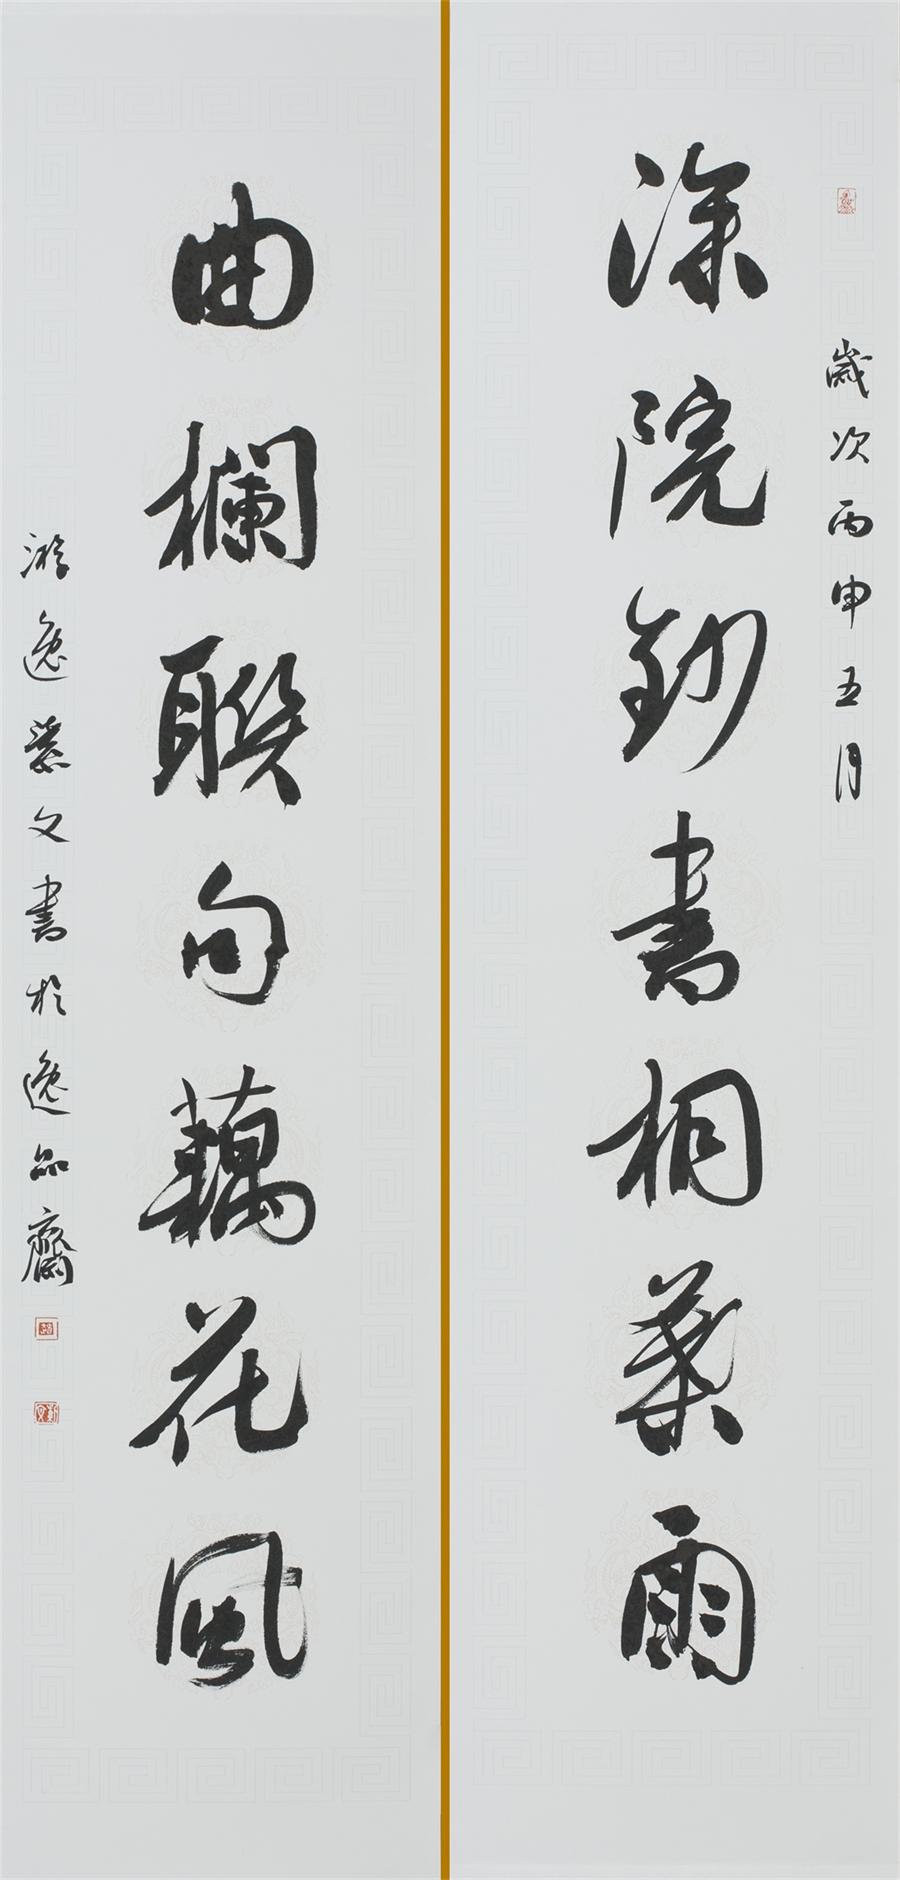 歲次丙申五月
深院鈔書桐葉雨
曲欄聯句藕花風
游逸 文書於逸品齋